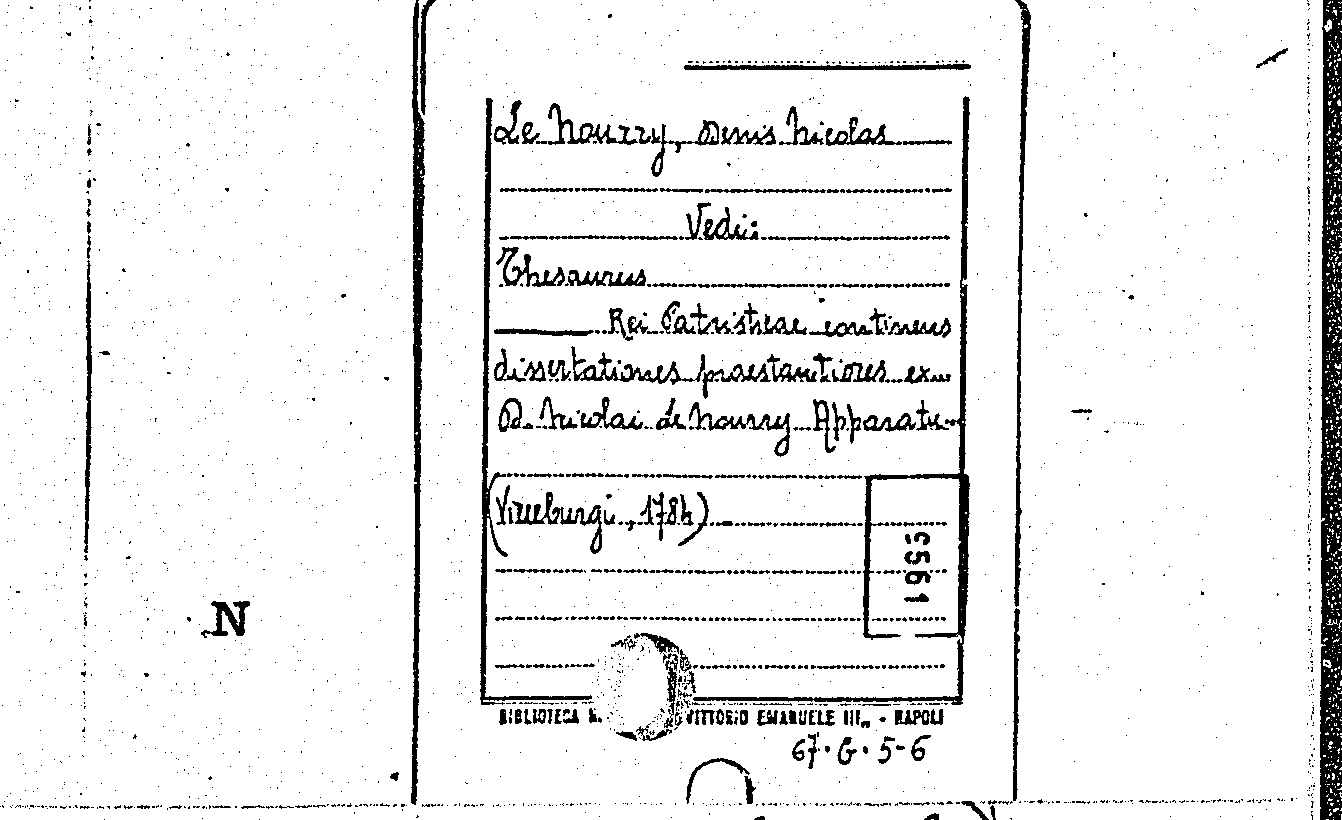 Le Nourry, Denis Nicolas
Vedi:
Thesaurus
Rei Patristicae continens
dissertationes praestantiores ex...
D. Nicolai Le Nourry Apparatu...
(Virceburgi, 1784)
1955
N
BIBLIOTECA N. VITTORIO EMANUELE III„ - NAPOLI
67. G. 5-6